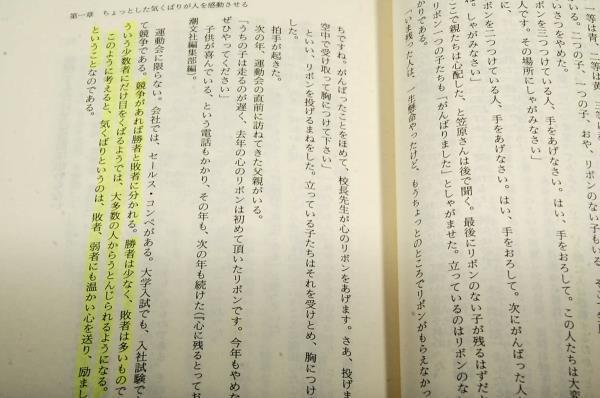 い。二つの子、一つの子、おや、リボンのない子もい
いさつをやめた。
ボンを三つつけている人、手をあげなさい。はい、手をおろして。この人たちは大変
人です。その場所にしゃがみなさい」
ボンを二つつけている人、手をあげなさい。はい、手をおろして、次にがんばった人
。しゃがみなさい」
ここで親たちは心配した、と笠原さんは後で聞く。最後にリボンのない子が残るはずだ
ボン一つの子たちも「がんばりました」としゃがませた。立っているのはリボンのな
かりである。
「いま残った人は、一生懸命やったけど、もうちょっとのところでリボンがもらえなかっ
第一章 ちょっとした気くばりが人を感動させる
ちですね。がんばったことをほめて、校長先生が心のリボンをあげます。さあ、投げま
空中で受け取って胸につけて下さい」
といい、リボンを投げるまねをした。立っている子たちはそれを受けとめ、胸につけ
した。
拍手が起きた。
次の年、運動会の直前に訪ねてきた父親がいる。
「うちの子は走るのが遅く、去年の心のリボンは初めて頂いたリボンです。今年もやめな
ぜひやってください」
子供が喜んでいる、という電話もかかり、その年も、次の年も続けた(『心に残るとってお
潮文社編集部編)。
運動会に限らない。会社では、セールス・コンペがある。大学入試でも、入社試験で
て競争である。競争があれば勝者と敗者に分かれる。勝者は少なく、敗者は多いもので
ういう少数者にだけ目をくばるようでは、大多数の人からうとんじられるようになる。
このように考えると、気くばりというのは、敗者、弱者にも温かい心を送り、励まし
ということなのである。